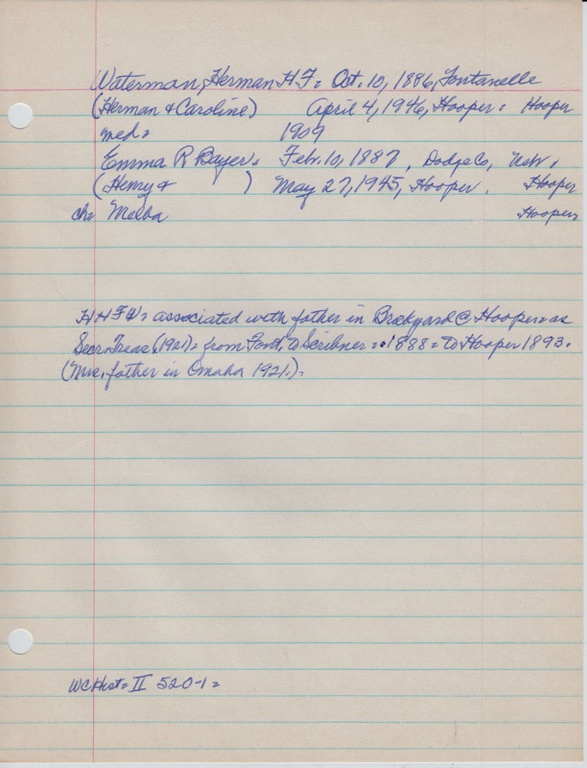 Waterman, Herman H F = Oct. 10, 1886, Fontanelle
(Herman & Caroline) April 4, 1946, Hooper = Hooper
med = 1909
Emma R Bayer = Feb. 10, 1887, Dodge Co, Nebr.
(Henry & ) May 27, 1945, Hooper. Hooper
ch = Melba Hooper
H H F W = associated with father in Brickyard @ Hooper = as
Secr-Treas (1921) = from Font. to Scribner = 1888 = to Hooper 1893.
father in Omaha 1921.) =
WC Hist = II 520-1 =